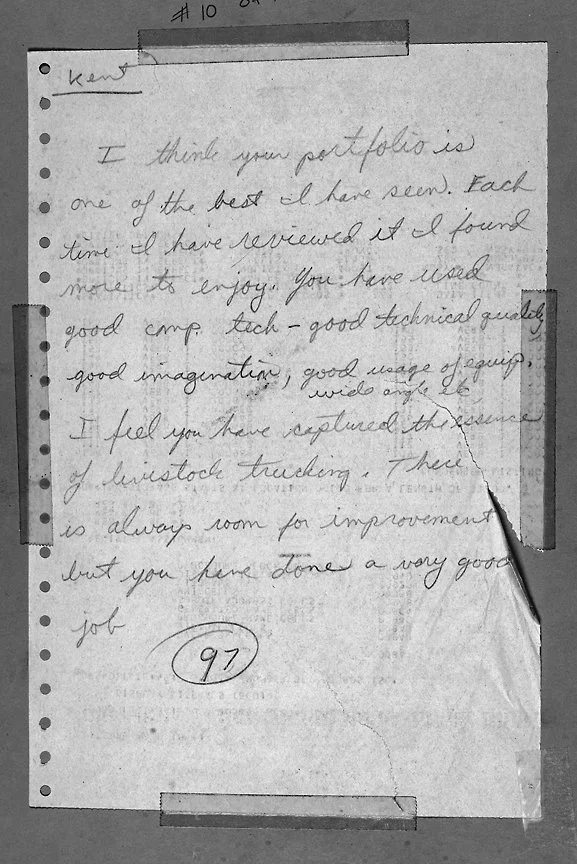 # 10
Kent
I think your portfolio is
one of the best I have seen. Each
time I have reviewed it I found
more to enjoy. You have used
good comp. tech - good technical quality
good imagination, good usage of equip.
wide angle etc
I feel you have captured the essence
of livestock trucking. There
is always room for improvement
but you have done a very good
job
97